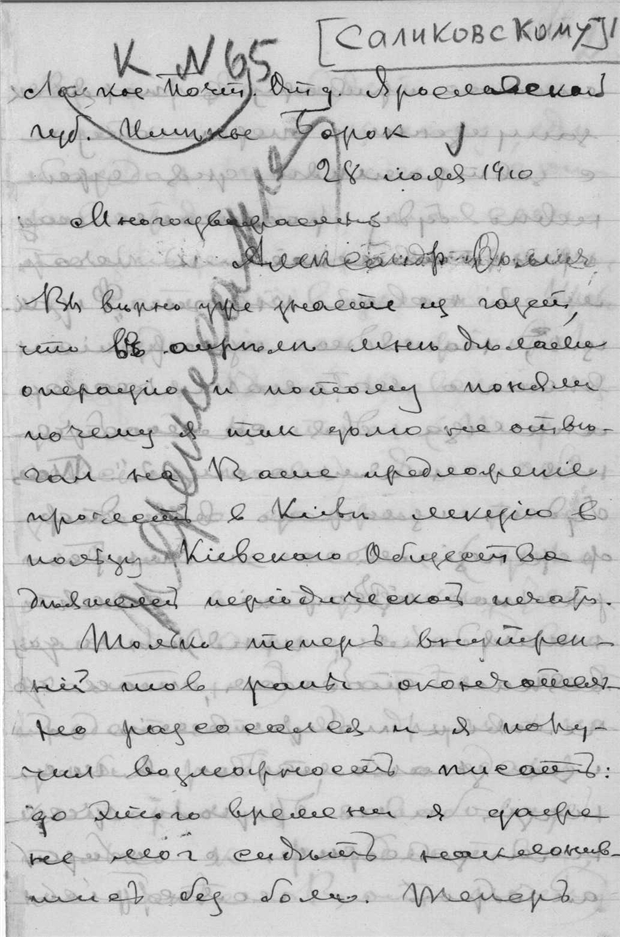 [Саликовскому]
К N 65
Лоцкое Почт. Отд. Ярославской
губ. Имѣнье Борок
28 июля 1910
Многоуважаемый
Александр Фомич,
Вы вѣрно уже знаете из газет,
что в апрѣлѣ мнѣ дѣлали
операцію и потому поняли
почему я так долго не отвѣ-
чал на Ваше предложеніе
прочесть в Кіевѣ лекцію в
пользу Кіевскаго Общества
дѣятелей періодической печати.
Только теперь внутрен-
ній шов раны окончатель-
но разсосался и я полу-
чил возможность писать:
до этого времени я даже
не мог сидѣть наклонив-
шись без боли. Теперь